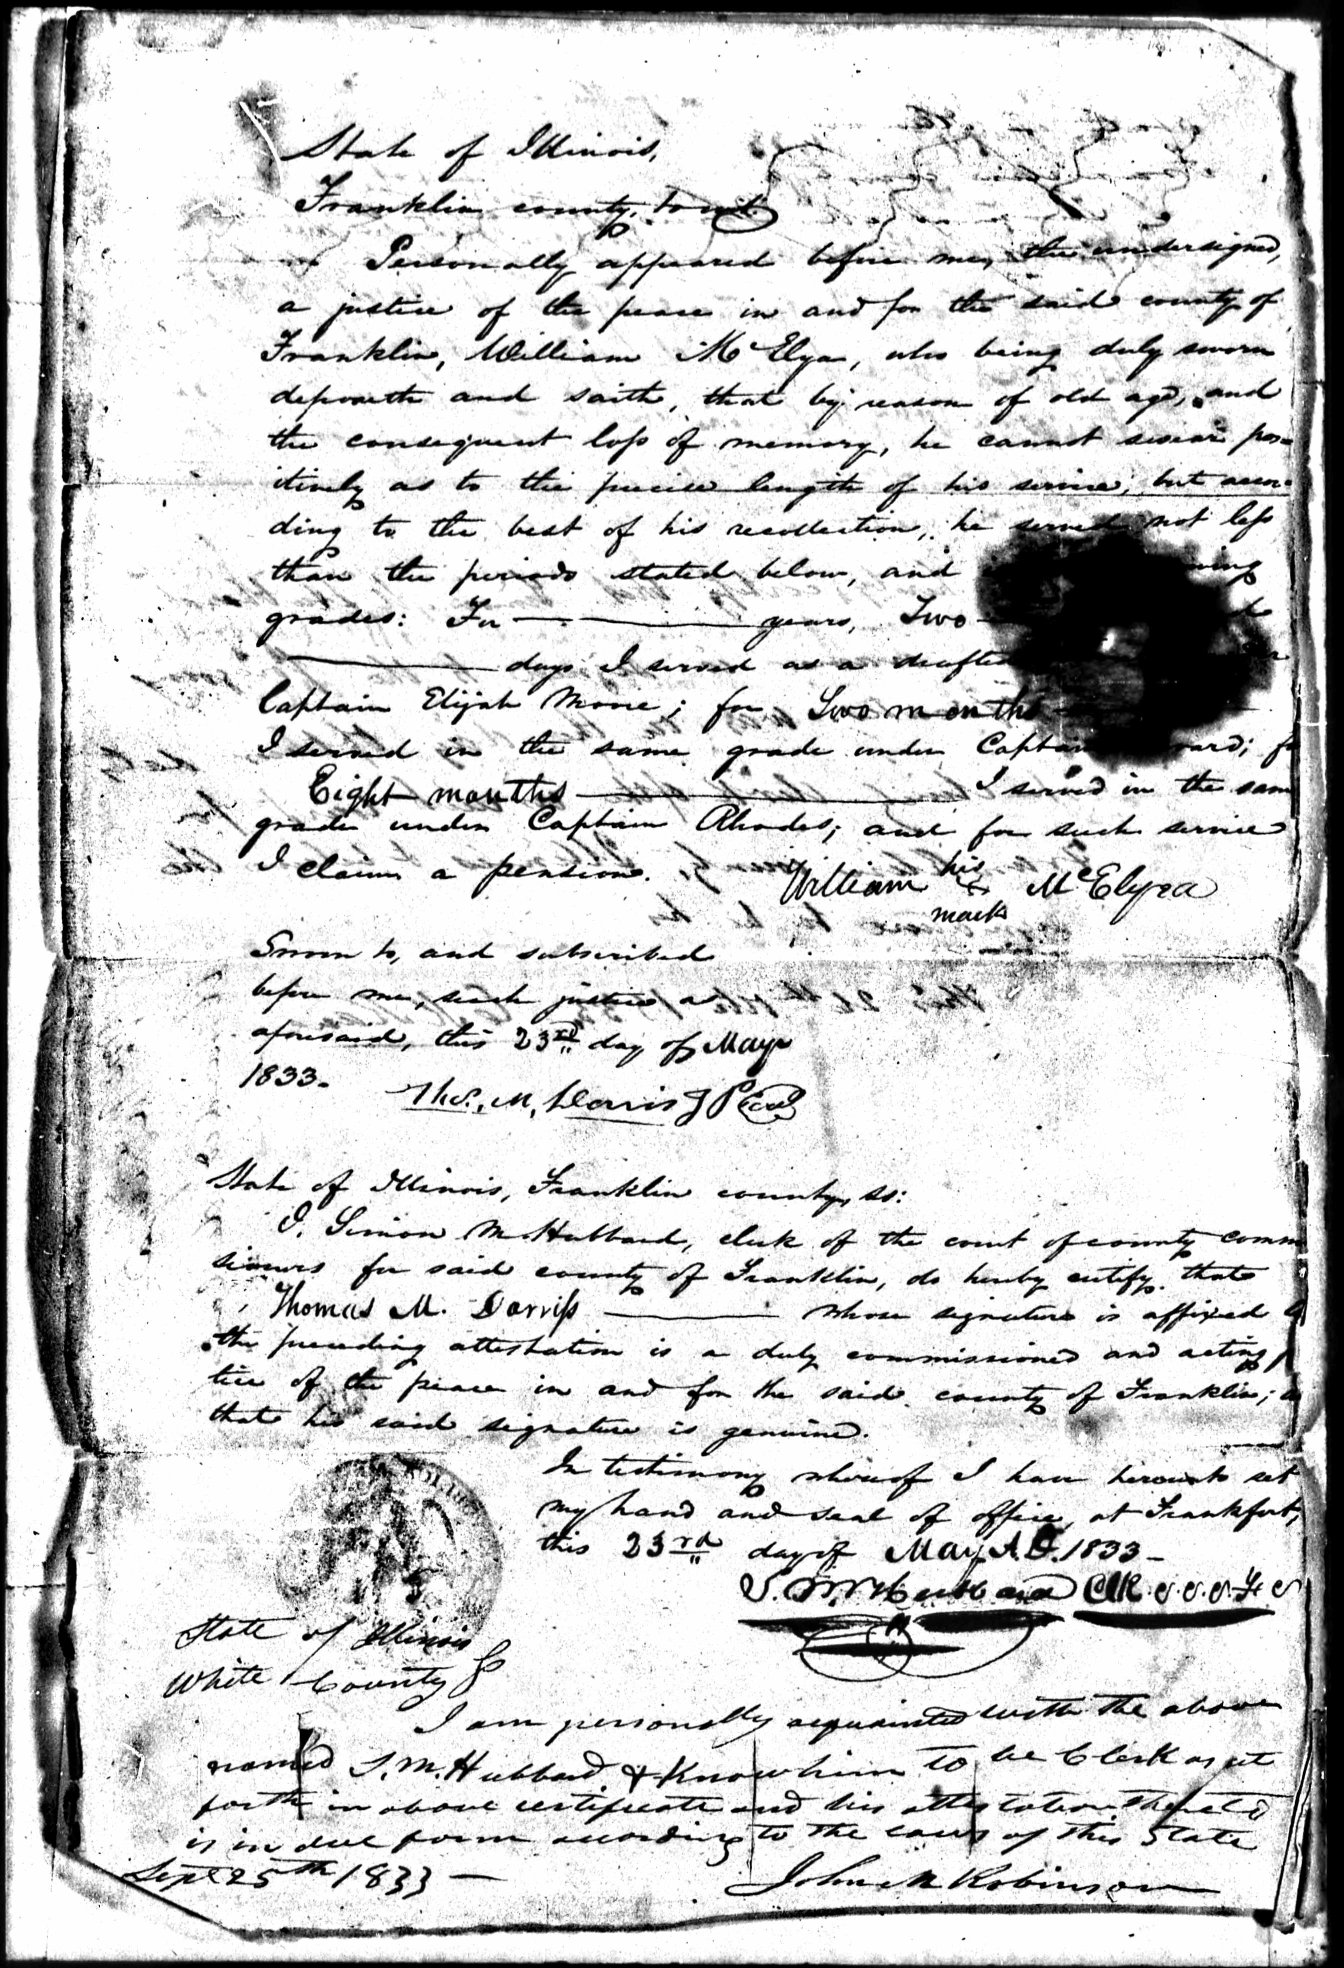 State of Illinois,
Franklin county, to wit:
Personally appeared before me, the undersigned,
a justice of the peace in and for the said county of
Franklin, William McElyea, who being duly sworn
deposeth and saith, that by reason of old age, and
the consequent loss of memory, he cannot swear pos=
itively as to the precise length of his service; but accor=
ding to the best of his recollection, he served not less
than the periods stated below, and
grades: For years, Two
days I served as a drafted
Captain Elijah Moore; for Two months
I served in the same grade under Captain
Eight months I served in the same
grade under Captain Rhodes; and for such service
I claim a pension. William his McElyea
mark
Sworn to, and subscribed
before me, such justice as
aforesaid, this 23rd day of May
1833.
Thos. M. Dorris J P
State of Illinois, Franklin county, ss:
I, Simon M Hubbard, clerk of the court of county commis
sioners for said county of Franklin, do hereby certify that
Thomas M. Dorriss whose signature is affixed to
the preceding attestation is a duly commissioned and acting jus
tice of the peace in and for the said county of Franklin;
that his said signature is genuine.
In testimony whereof I have hereunto set
my hand and seal of office, at Frankfort,
this 23rd day of May A.D. 1833
S. M. Hubbard Clk. c.c.c. F. c
State of Illinois
White County
I am personally acquainted with the above
named S. M. Hubbard & Know him to be Clerk as set
forth in above certificate and his attestation thereto
is in due form according to the laws of this State
Sept 25th 1833 John M Robinson